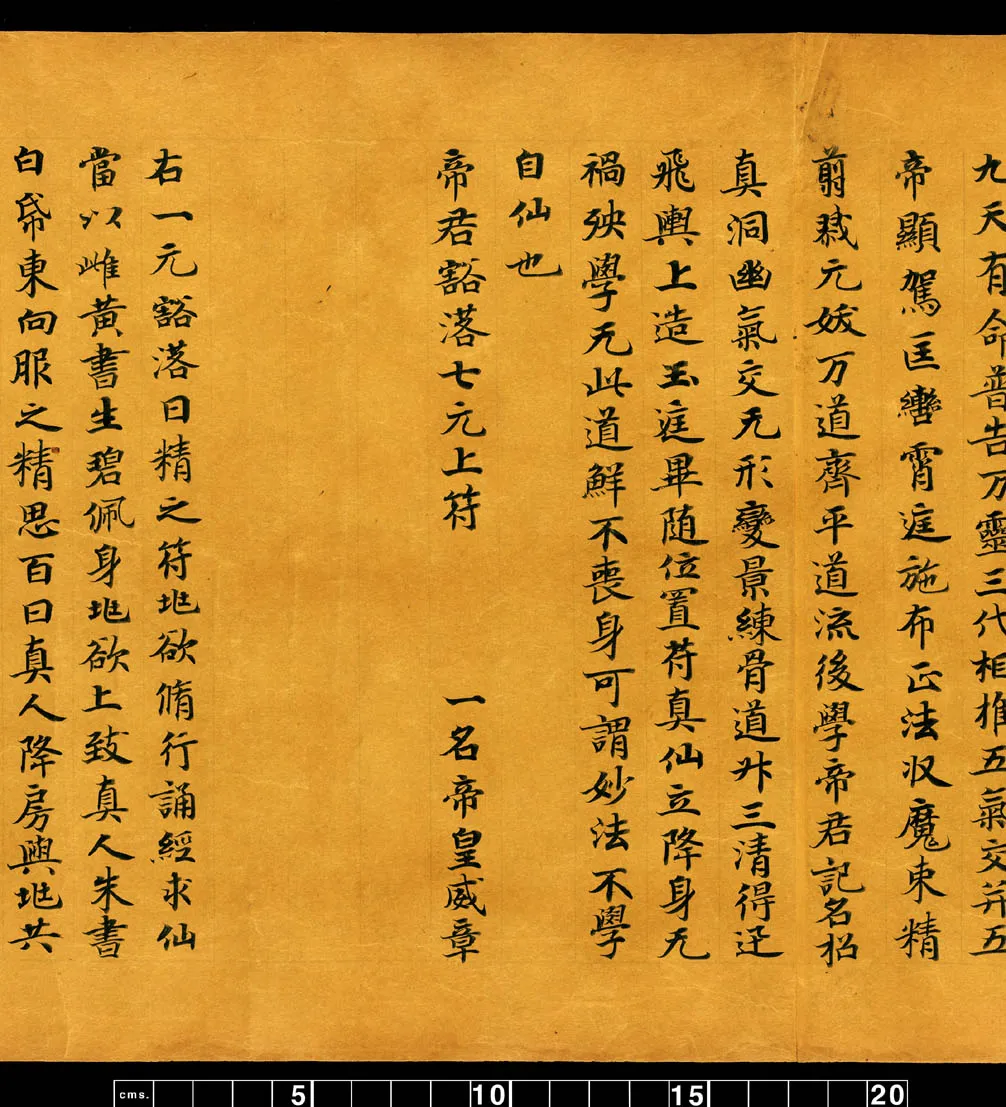 九天有命普告万靈三代相推五氣交并五
帝顯駕匡轡霄庭施布正法収魔束精
翦裁元妭万道齊平道流後學帝君記名招
真洞幽氣交无形變景練骨道升三清得迁
飛輿上造玉庭畢随位置苻真仙立降身无
禍殃學无此道鮮不喪身可謂妙法不學
自仙也
帝君豁落七元上苻 一名帝皇威章
右一元豁落日精之苻地欲脩行誦經求仙
當以雌黄書生碧佩身地欲上致真人朱書
白帋東向服之精思百日真人降房與地共
cms. 5 10 15 20